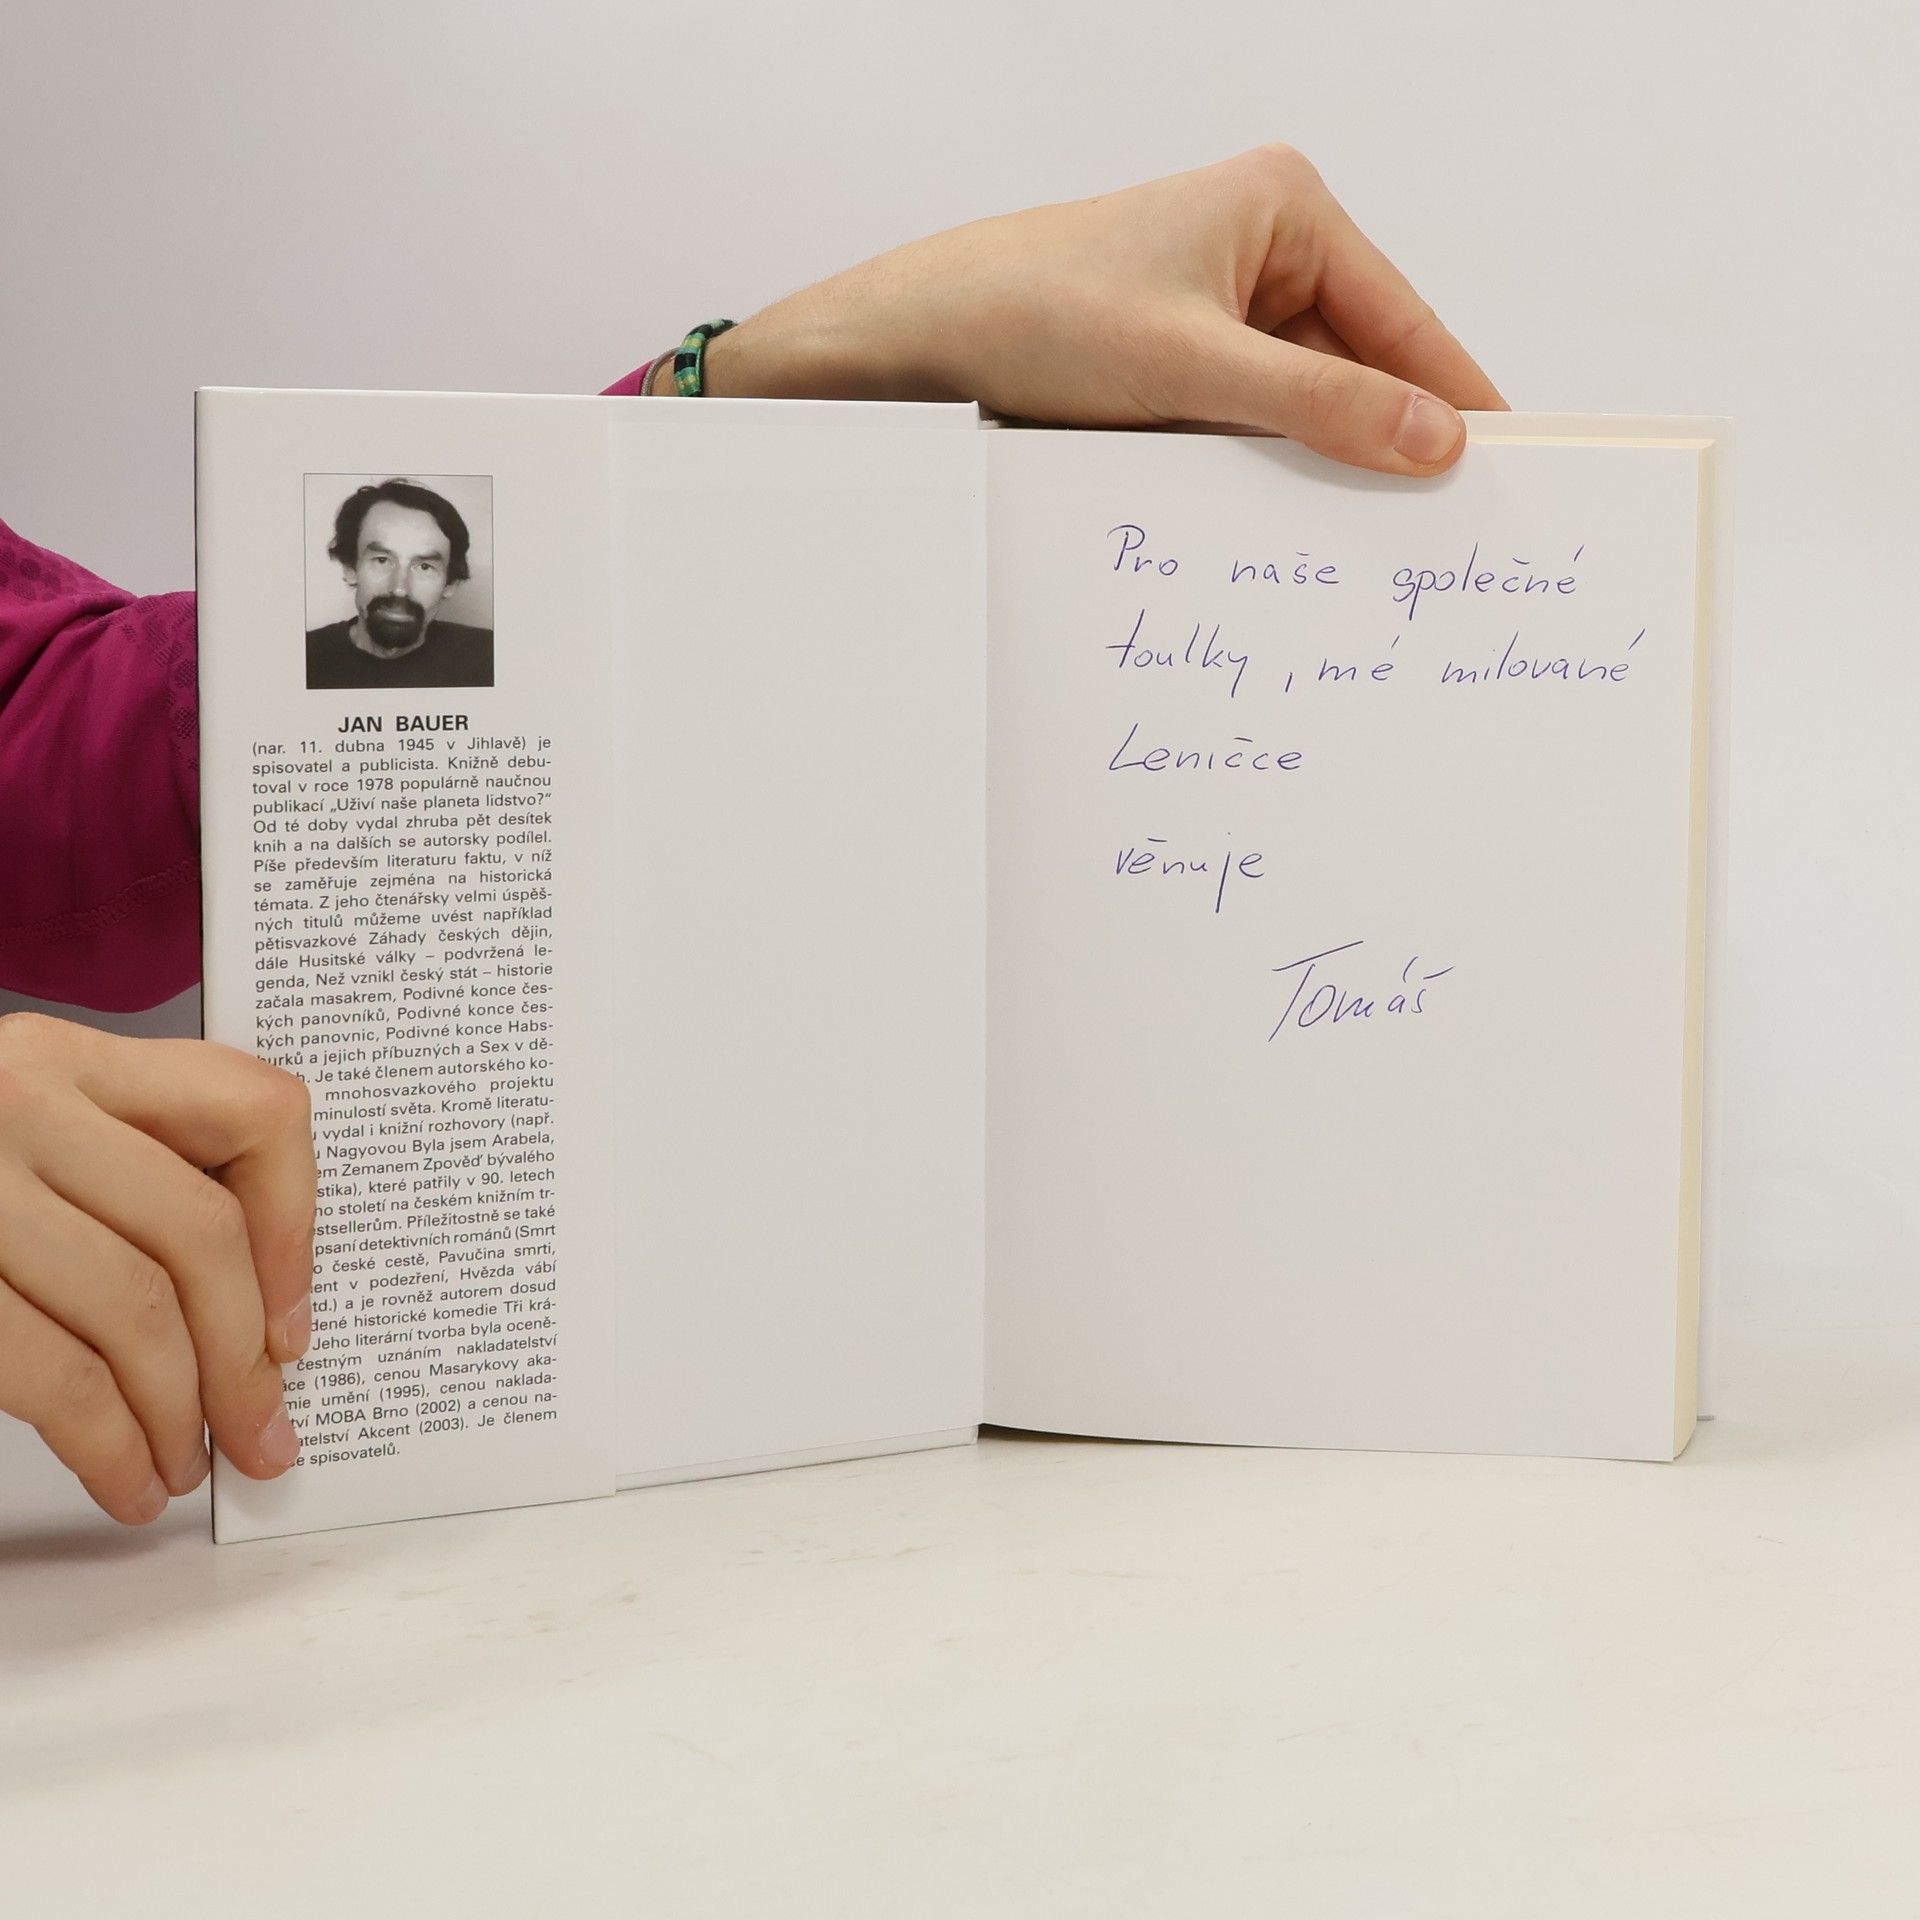 JAN BAUER
(nar. 11. dubna 1945 v Jihlavě) je
spisovatel a publicista. Knižně debu-
toval v roce 1978 populárně naučnou
publikací „Uživí naše planeta lidstvo?“
Od té doby vydal zhruba pět desítek
knih a na dalších se autorsky podílel.
Píše především literaturu faktu, v níž
se zaměřuje zejména na historická
témata. Z jeho čtenářsky velmi úspěš-
ných titulů můžeme uvést například
pětisvazkové Záhady českých dějin,
dále Husitské války – podvržená le-
genda, Než vznikl český stát – historie
začala masakrem, Podivné konce čes-
kých panovníků, Podivné konce čes-
kých panovnic, Podivné konce Habs-
burků a jejich příbuzných a Sex v dě-
Je také členem autorského ko-
mnohosvazkového projektu
minulostí světa. Kromě literatu-
vydal i knižní rozhovory (např.
Nagyovou Byla jsem Arabela,
Zemanem Zpověď bývalého
které patřily v 90. letech
století na českém knižním tr-
Příležitostně se také
psaní detektivních románů (Smrt
české cestě, Pavučina smrti,
v podezření, Hvězda vábí
a je rovněž autorem dosud
historické komedie Tři krá-
Jeho literární tvorba byla oceně-
čestným uznáním nakladatelství
(1986), cenou Masarykovy aka-
umění (1995), cenou naklada-
MOBA Brno (2002) a cenou na-
Akcent (2003). Je členem
spisovatelů.
Pro naše společné
toulky, mé milované
Leničce
věnuje
Tomáš